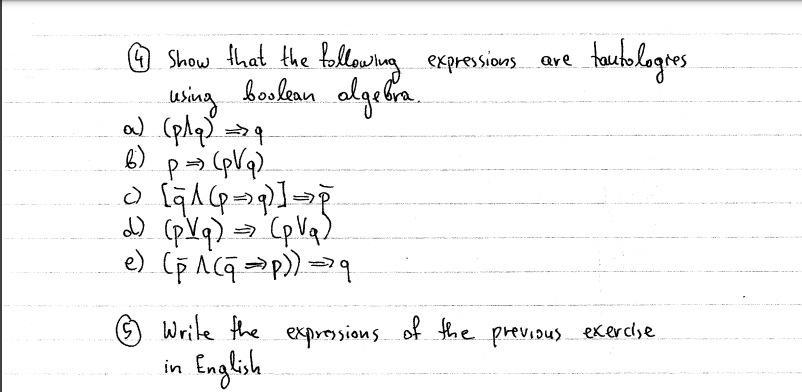 ④ Show that the following expressions are tautologies
using boolean algebra.
a) (p∧q) ⇒ q
b) p ⇒ (p∨q)
c) [q̄ ∧ (p ⇒ q)] ⇒ p̄
d) (p⊻q) ⇒ (p∨q)
e) (p̄ ∧ (q̄ ⇒ p)) ⇒ q
⑤ Write the expressions of the previous exercise
in English